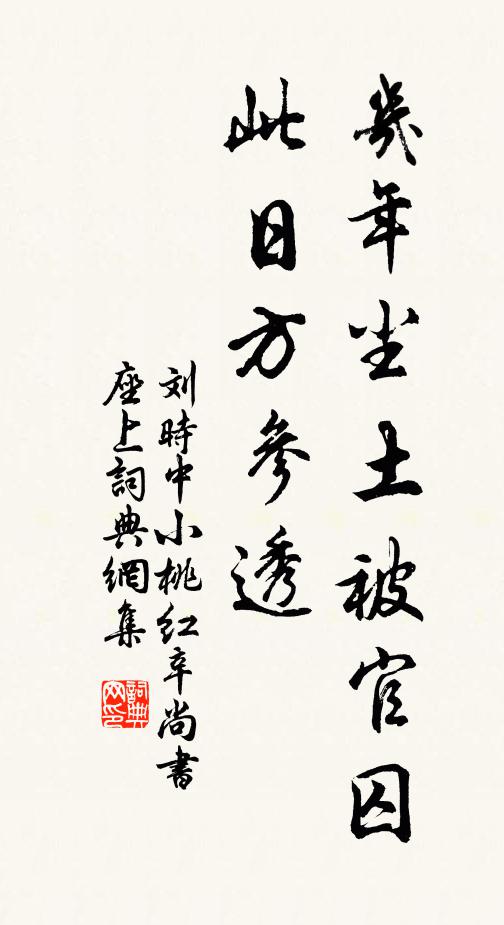 幾年尘土被官囚
此日方參透
刘時中小桃红辛尚書
座上詞典網集
詞典網印